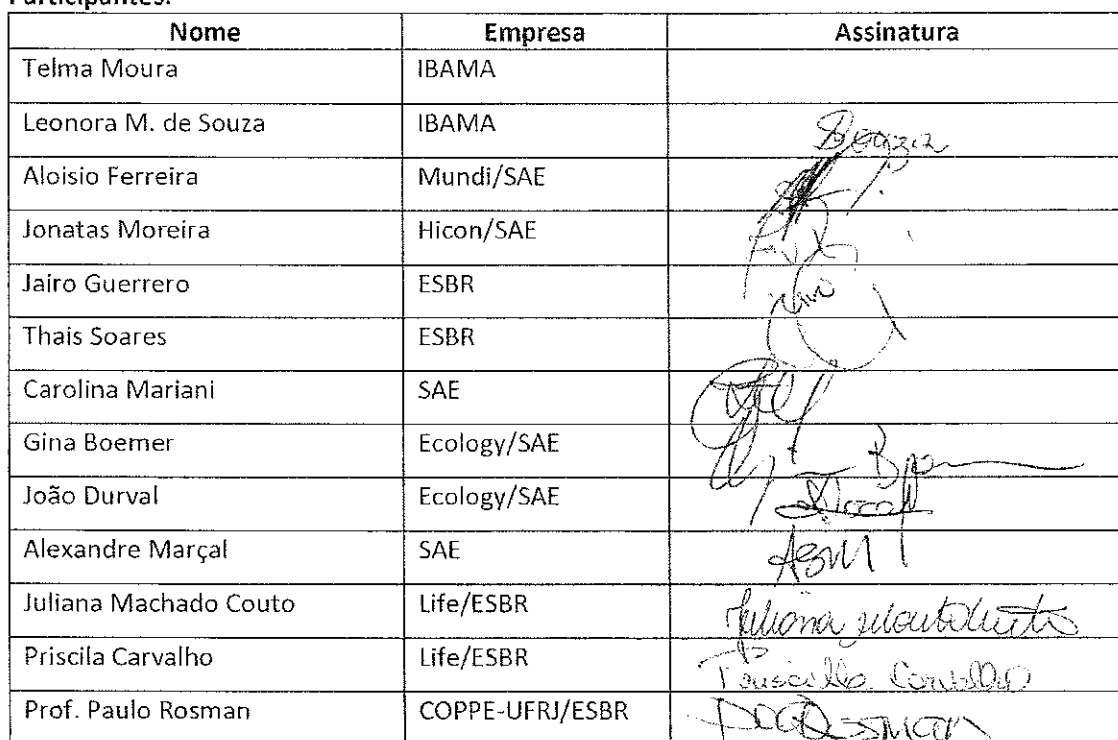 Participantes:
Nome Empresa Assinatura
Telma Moura IBAMA
Leonora M. de Souza IBAMA Souza
Aloisio Ferreira Mundi/SAE
Jonatas Moreira Hicon/SAE
Jairo Guerrero ESBR
Thais Soares ESBR
Carolina Mariani SAE
Gina Boemer Ecology/SAE
João Durval Ecology/SAE
Alexandre Marçal SAE
Juliana Machado Couto Life/ESBR Juliana
Priscila Carvalho Life/ESBR Priscilla Carvalho
Prof. Paulo Rosman COPPE-UFRJ/ESBR